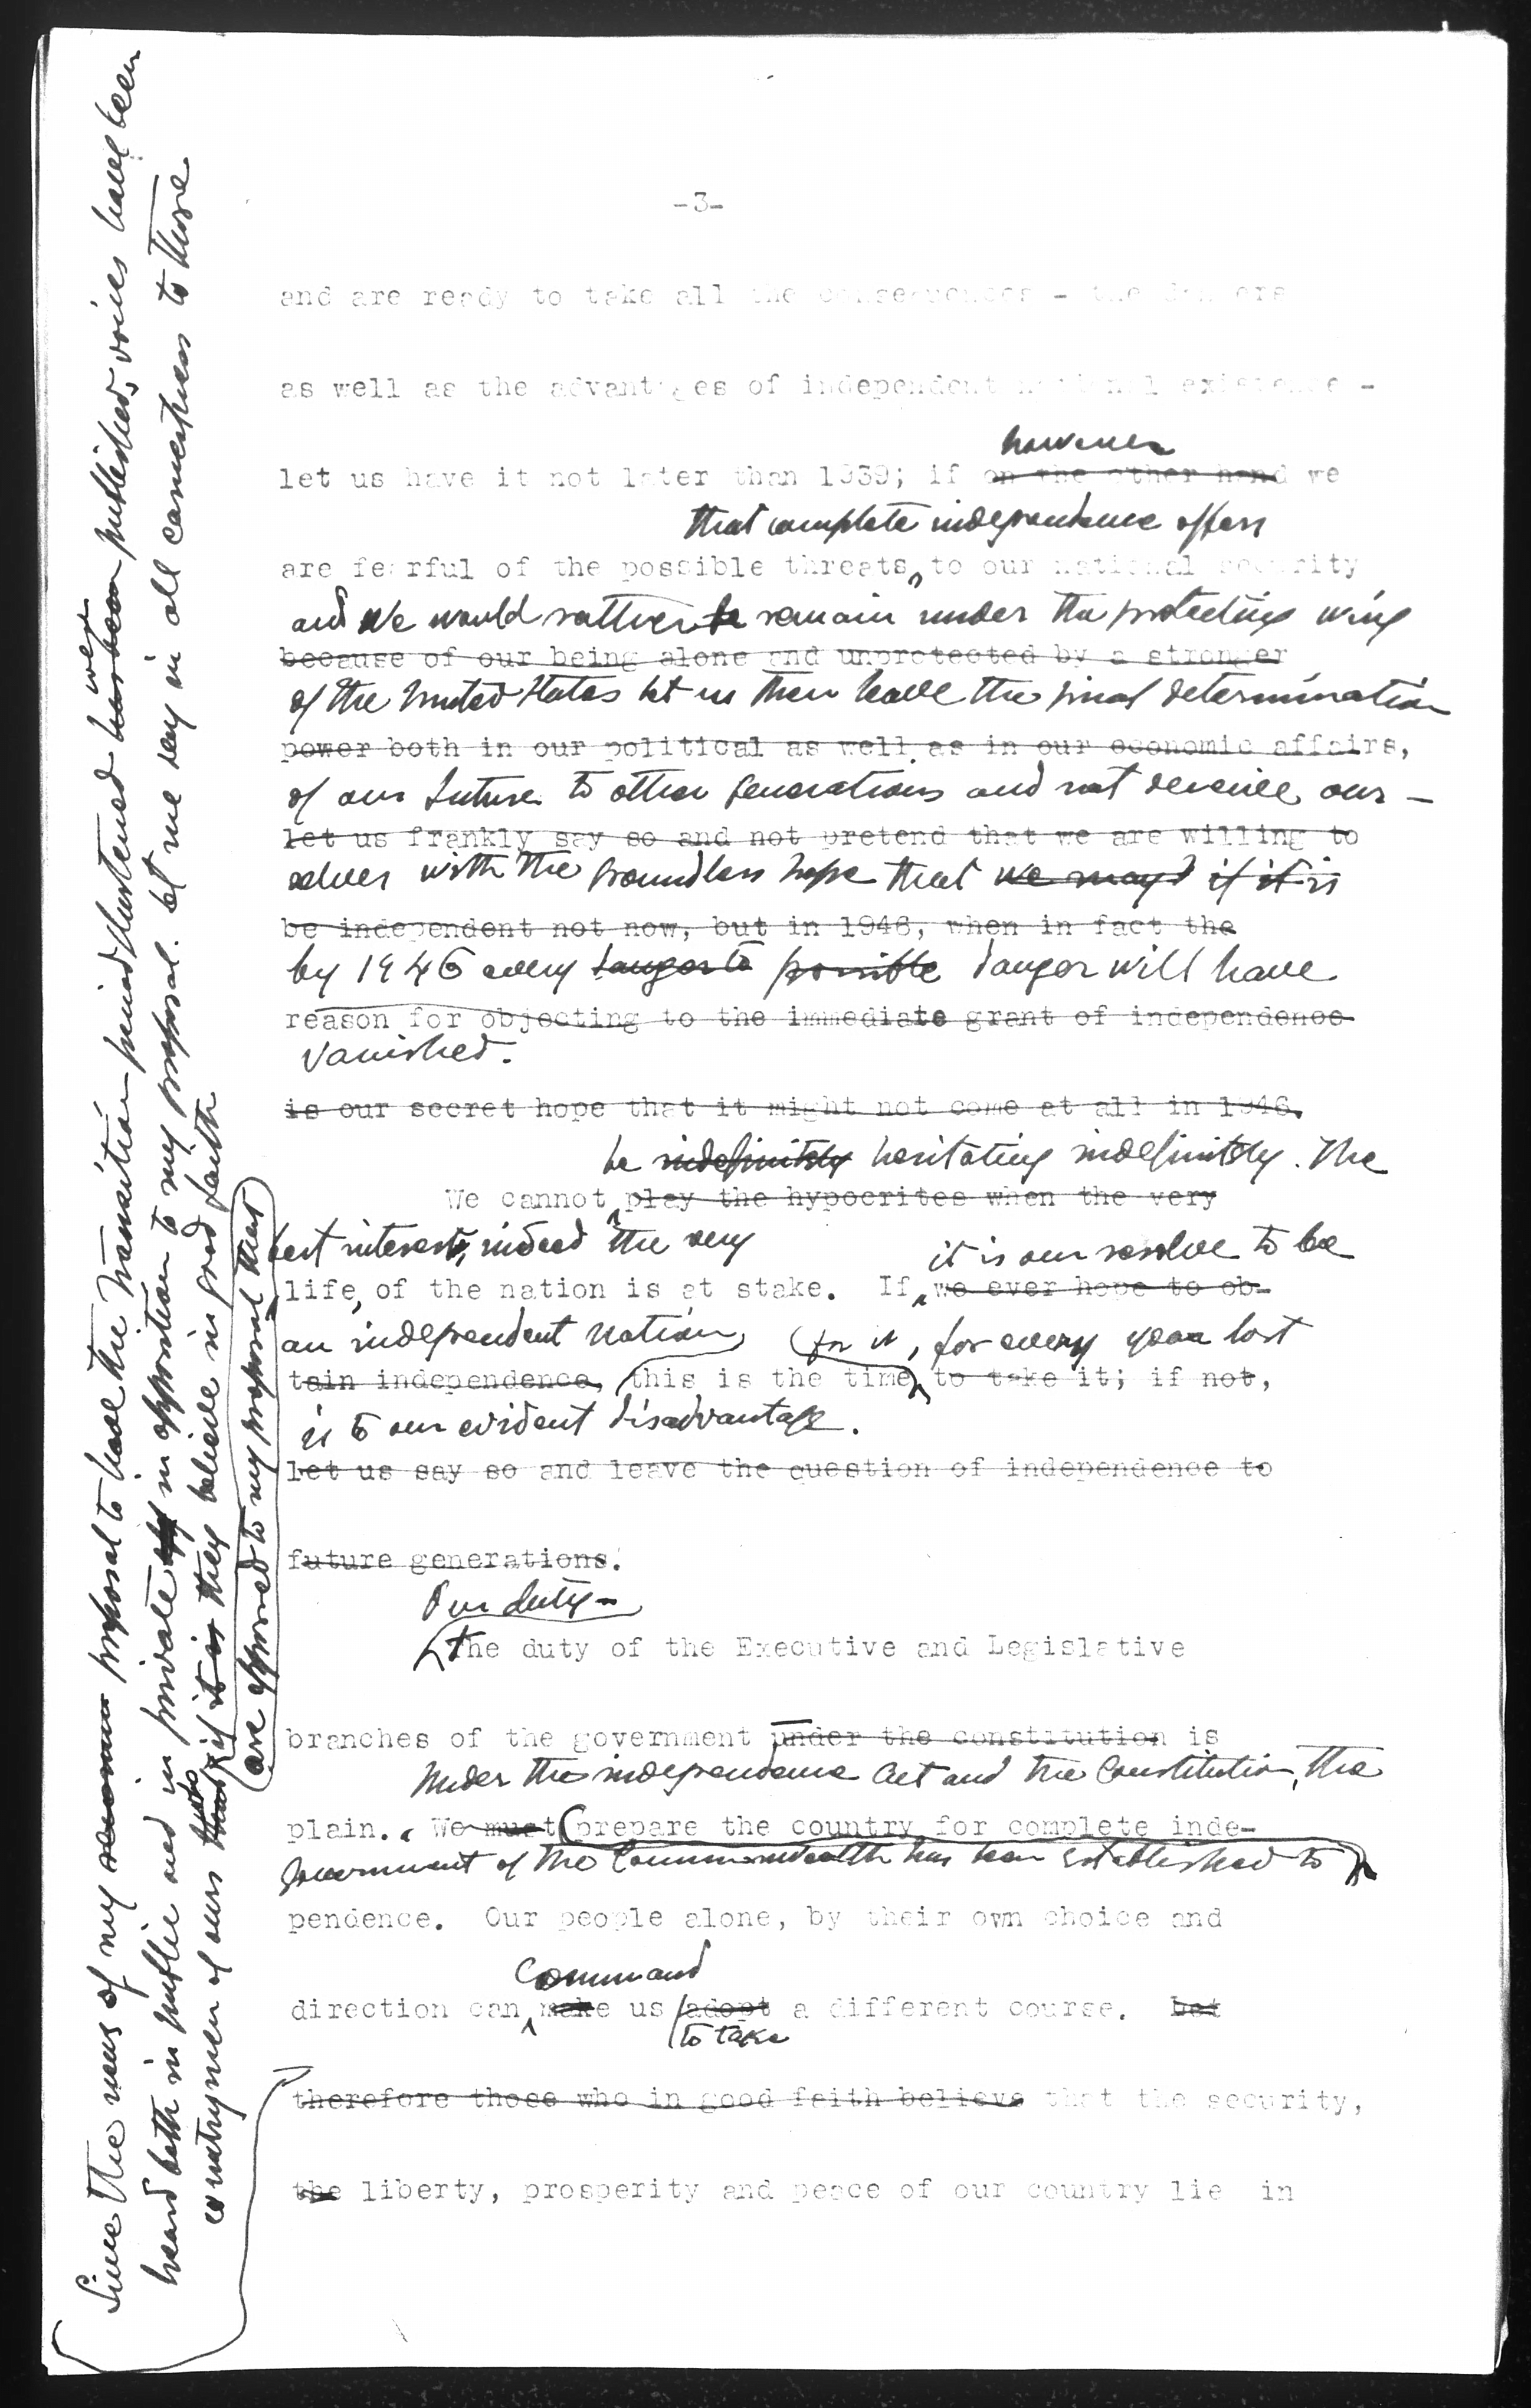 -3-
and are ready to take all the consequences - the dangers
as well as the advantages of independent national existence -
however
let us have it not later than 1939; if on the other hand we
that complete independence offers
are fearful of the possible threats to our national security
and we would rather remain under the protecting wing
because of our being alone and unprotected by a stronger
of the United States let us then leave the final determination
power both in our political as well as in our economic affairs,
of our future to other generations and not deceive our-
let us frankly say so and not pretend that we are willing to
selves with the groundless hope that we may if it is
be independent not now, but in 1946, when in fact the
by 1946 every danger to possible danger will have
reason for objecting to the immediate grant of independence
vanished.
is our secret hope that it might not come at all in 1946.
be indefinitely hesitating indefinitely. The
We cannot play the hypocrites when the very
best interests, indeed the very it is our resolve to be
life, of the nation is at stake. If we ever hope to ob-
an independent nation, for it, for every year lost
tain independence, this is the time to take it; if not,
is to our evident disadvantage.
let us say so and leave the question of independence to
future generations.
Our duty -
The duty of the Executive and Legislative
branches of the government under the constitution is
Under the independence Act and the Constitution, the
plain. We must prepare the country for complete inde-
government of the Commonwealth has been established to
pendence. Our people alone, by their own choice and
command
direction can make us adopt a different course. but
to take
therefore those who in good faith believe that the security,
the liberty, prosperity and peace of our country lie in
Since the news of my proposal to have the transition period shortened has been were published, voices have been
heard both in public and in private in opposition to my proposal. Let me say in all earnestness to those
countrymen of ours that who if it is they believe in good faith
are opposed to my proposal that